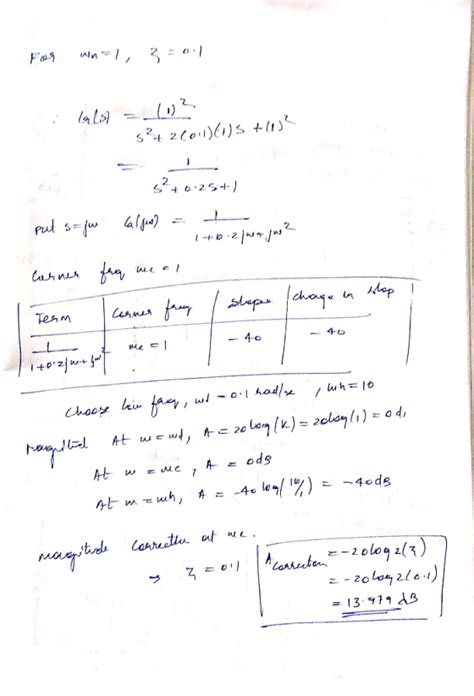 For wn=1, ζ=0.1
∴ G(s) = (1)²
s²+2(0.1)(1)s+(1)²
= 1
s²+0.2s+1
put s=jw G(jw) = 1
1+0.2jw+jw²
Corner frq wc=1
Term Corner freq Slope change in slop
1 wc=1 -40 -40
1+0.2jw+jw²
Choose low freq, wl=0.1 rad/se, wh=10
Magnitud At w=wl, A=20log(K)=20log(1)=0d
At w=wc, A=0dB
At w=wh, A=-40log(10/1)=-40dB
magnitude correction at wc.
→ ζ=0.1
Acorrection =-20log2(ζ)
=-20log2(0.1)
=13.979 dB